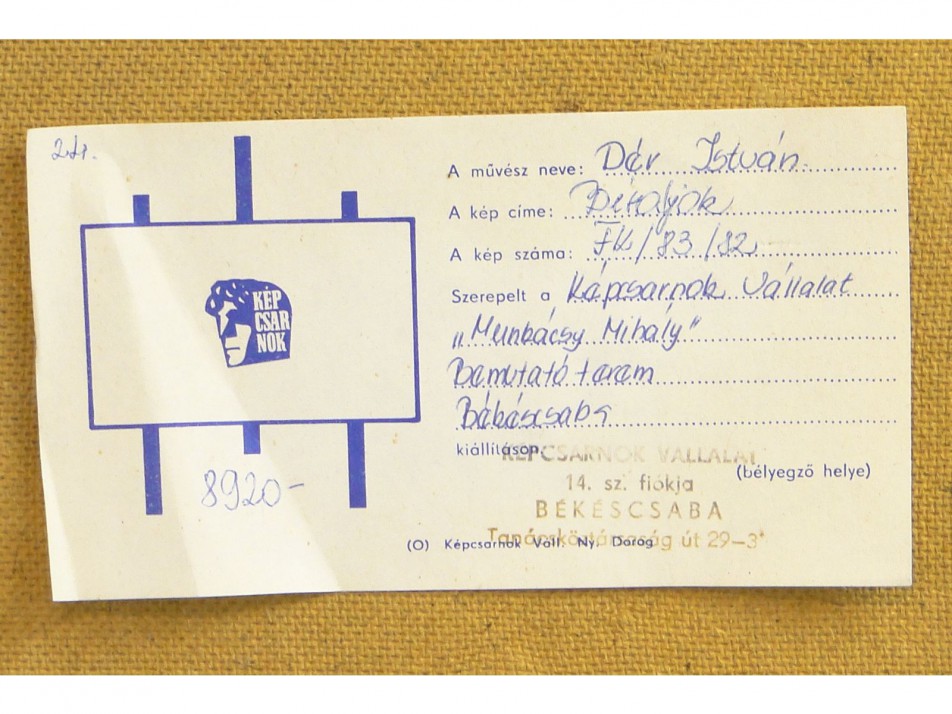 2 dr.
KÉP
CSAR
NOK
8920-
A művész neve: Dér István
A kép címe:
A kép száma: FK/83/82
Szerepelt a Képcsarnok Vállalat
„Munkácsy Mihály"
Bemutató terem
Békéscsaba
kiállításon.
KÉPCSARNOK VÁLLALAT
(bélyegző helye)
14. sz. fiókja
BÉKÉSCSABA
Tanácsköztársaság út 29–3
(O) Képcsarnok Váll. Ny. Dorog